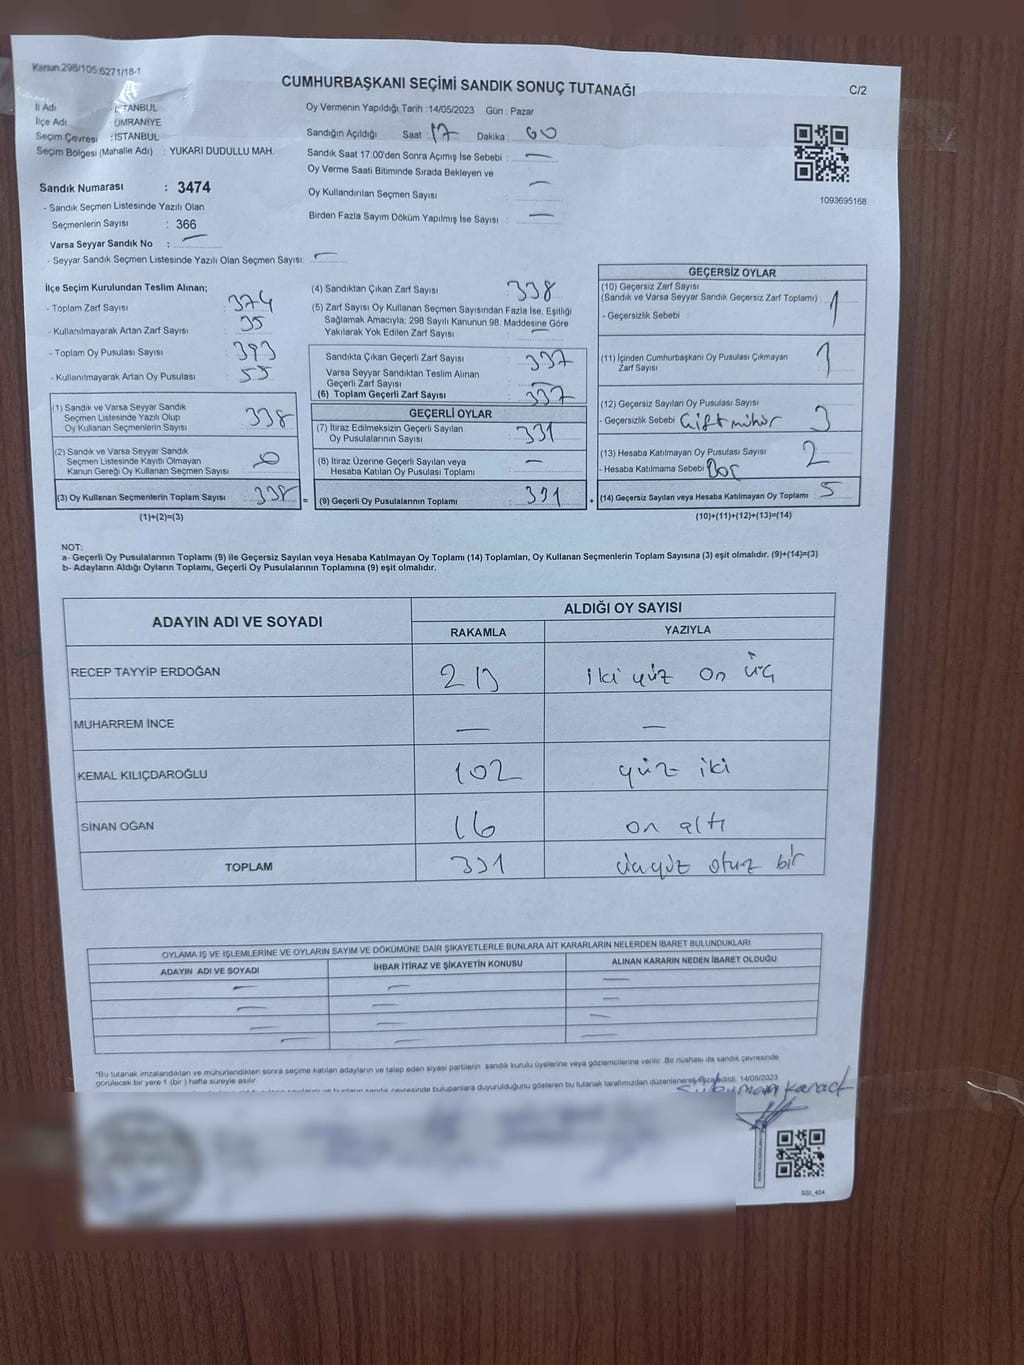 Kanun.298/105,6271/18-1
CUMHURBAŞKANI SEÇİMİ SANDIK SONUÇ TUTANAĞI
C/2
İl Adı : İSTANBUL
İlçe Adı : ÜMRANİYE
Seçim Çevresi : İSTANBUL
Seçim Bölgesi (Mahalle Adı) : YUKARI DUDULLU MAH.
Oy Vermenin Yapıldığı Tarih :14/05/2023 Gün : Pazar
Sandığın Açıldığı Saat : 17 Dakika : 00
Sandık Saat 17:00'den Sonra Açımış İse Sebebi : —
Oy Verme Saati Bitiminde Sırada Bekleyen ve
Oy Kullandırılan Seçmen Sayısı : —
Birden Fazla Sayım Döküm Yapılmış İse Sayısı : —
1093695168
Sandık Numarası : 3474
- Sandık Seçmen Listesinde Yazılı Olan
Seçmenlerin Sayısı : 366
Varsa Seyyar Sandık No : —
- Seyyar Sandık Seçmen Listesinde Yazılı Olan Seçmen Sayısı: —
İlçe Seçim Kurulundan Teslim Alınan;
- Toplam Zarf Sayısı : 374
- Kullanılmayarak Artan Zarf Sayısı : 35
- Toplam Oy Pusulası Sayısı : 393
- Kullanılmayarak Artan Oy Pusulası : 55
(1) Sandık ve Varsa Seyyar Sandık
Seçmen Listesinde Yazılı Olup
Oy Kullanan Seçmenlerin Sayısı : 338
(2) Sandık ve Varsa Seyyar Sandık
Seçmen Listesinde Kayıtlı Olmayan
Kanun Gereği Oy Kullanan Seçmen Sayısı : 0
(3) Oy Kullanan Seçmenlerin Toplam Sayısı : 338
(1)+(2)=(3)
(4) Sandıktan Çıkan Zarf Sayısı : 338
(5) Zarf Sayısı Oy Kullanan Seçmen Sayısından Fazla İse, Eşitliği
Sağlamak Amacıyla; 298 Sayılı Kanunun 98. Maddesine Göre
Yakılarak Yok Edilen Zarf Sayısı : —
Sandıkta Çıkan Geçerli Zarf Sayısı : 337
Varsa Seyyar Sandıktan Teslim Alınan
Geçerli Zarf Sayısı : —
(6) Toplam Geçerli Zarf Sayısı : 337
GEÇERLİ OYLAR
(7) İtiraz Edilmeksizin Geçerli Sayılan
Oy Pusulalarının Sayısı : 331
(8) İtiraz Üzerine Geçerli Sayılan veya
Hesaba Katılan Oy Pusulası Toplamı : —
= (9) Geçerli Oy Pusulalarının Toplamı : 331
GEÇERSİZ OYLAR
(10) Geçersiz Zarf Sayısı
(Sandık ve Varsa Seyyar Sandık Geçersiz Zarf Toplamı) : 1
- Geçersizlik Sebebi :
(11) İçinden Cumhurbaşkanı Oy Pusulası Çıkmayan
Zarf Sayısı : 1
(12) Geçersiz Sayılan Oy Pusulası Sayısı
- Geçersizlik Sebebi : Çift mühür 3
(13) Hesaba Katılmayan Oy Pusulası Sayısı
- Hesaba Katılmama Sebebi : Boş 2
+ (14) Geçersiz Sayılan veya Hesaba Katılmayan Oy Toplamı : 5
(10)+(11)+(12)+(13)=(14)
NOT:
a- Geçerli Oy Pusulalarının Toplamı (9) ile Geçersiz Sayılan veya Hesaba Katılmayan Oy Toplamı (14) Toplamları, Oy Kullanan Seçmenlerin Toplam Sayısına (3) eşit olmalıdır. (9)+(14)=(3)
b- Adayların Aldığı Oyların Toplamı, Geçerli Oy Pusulalarının Toplamına (9) eşit olmalıdır.
ADAYIN ADI VE SOYADI
ALDIĞI OY SAYISI
RAKAMLA YAZIYLA
RECEP TAYYİP ERDOĞAN 213 iki yüz on üç
MUHARREM İNCE — —
KEMAL KILIÇDAROĞLU 102 yüz iki
SİNAN OĞAN 16 on altı
TOPLAM 331 üçyüz otuz bir
OYLAMA İŞ VE İŞLEMLERİNE VE OYLARIN SAYIM VE DÖKÜMÜNE DAİR ŞİKAYETLERLE BUNLARA AİT KARARLARIN NELERDEN İBARET BULUNDUKLARI
ADAYIN ADI VE SOYADI İHBAR İTİRAZ VE ŞİKAYETİN KONUSU ALINAN KARARIN NEDEN İBARET OLDUĞU
— — —
— — —
— — —
— — —
"Bu tutanak imzalandıktan ve mühürlendikten sonra seçime katılan adayların ve talep eden siyasi partilerin sandık kurulu üyelerine veya gözlemcilerine verilir. Bir nüshası da sandık çevresinde
görülecek bir yere 1 (bir) hafta süreyle asılır
sandık çevresinde bulunanlara duyurulduğunu gösteren bu tutanak tarafımızdan düzenlenerek imzalandı. 14/05/2023
SSI_404